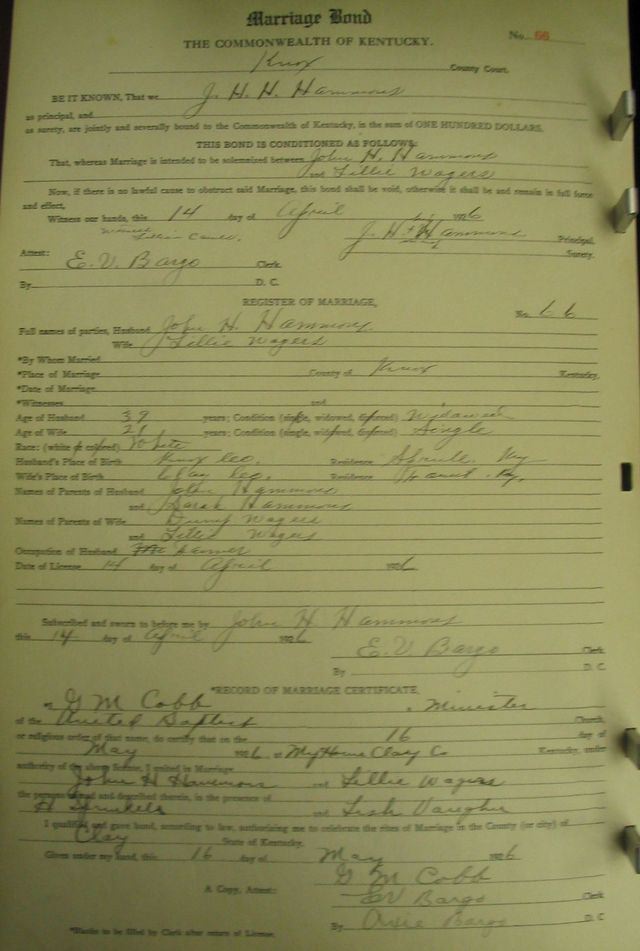 Marriage Bond
THE COMMONWEALTH OF KENTUCKY.
No. 66
Knox County Court.
BE IT KNOWN, That we J. H. H. Hammons
as principal, and
as surety, are jointly and severally bound to the Commonwealth of Kentucky, in the sum of ONE HUNDRED DOLLARS.
THIS BOND IS CONDITIONED AS FOLLOWS:
That, whereas Marriage is intended to be solemnized between John H. Hammons
and Lillie Wagers
Now, if there is no lawful cause to obstruct said Marriage, this bond shall be void, otherwise it shall be and remain in full force
and effect,
Witness our hands, this 14 day of April 1926
Witness
J. H + H Hammons Principal.
Surety.
Attest: E. V. Bargo Clerk.
By D. C.
REGISTER OF MARRIAGE,
No 66
Full names of parties, Husband John H. Hammons
Wife Lillie Wagers
*By Whom Married
*Place of Marriage County of Knox Kentucky.
*Date of Marriage
*Witnesses and
Age of Husband 39 years; Condition (single, widowed, divorced) Widower
Age of Wife 21 years; Condition (single, widowed, divorced) Single
Race: (white or colored) White
Husband's Place of Birth Knox Co. Residence Ky
Wife's Place of Birth Clay Co. Residence Ky.
Names of Parents of Husband John Hammons
and Sarah Hammons
Names of Parents of Wife Wagers
and Lillie Wagers
Occupation of Husband Farmer
Date of License 14 day of April 1926
Subscribed and sworn to before me by John H Hammons
this 14 day of April 1926
E. V. Bargo Clerk
By D. C
*RECORD OF MARRIAGE CERTIFICATE,
I, G M Cobb, a Minister
of the United Baptist Church,
or religious order of that name, do certify that on the 16 day of
May 1926, at My Home Clay Co Kentucky, under
authority of the above license, I united in Marriage
John H Hammons and Lillie Wagers
the persons named and described therein, in the presence of
H and Vaughn
I qualified and gave bond, according to law, authorizing me to celebrate the rites of Marriage in the County (or city) of
Clay State of Kentucky.
Given under my hand, this 16 day of May 1926
G M Cobb
A Copy, Attest: EV Bargo Clerk
By Bargo D. C
*Blanks to be filled by Clerk after return of License.